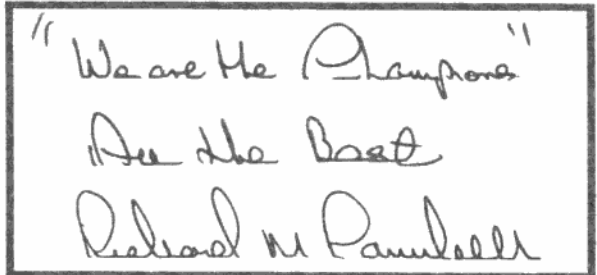 "We are the Champions"
All the Best
Richard M